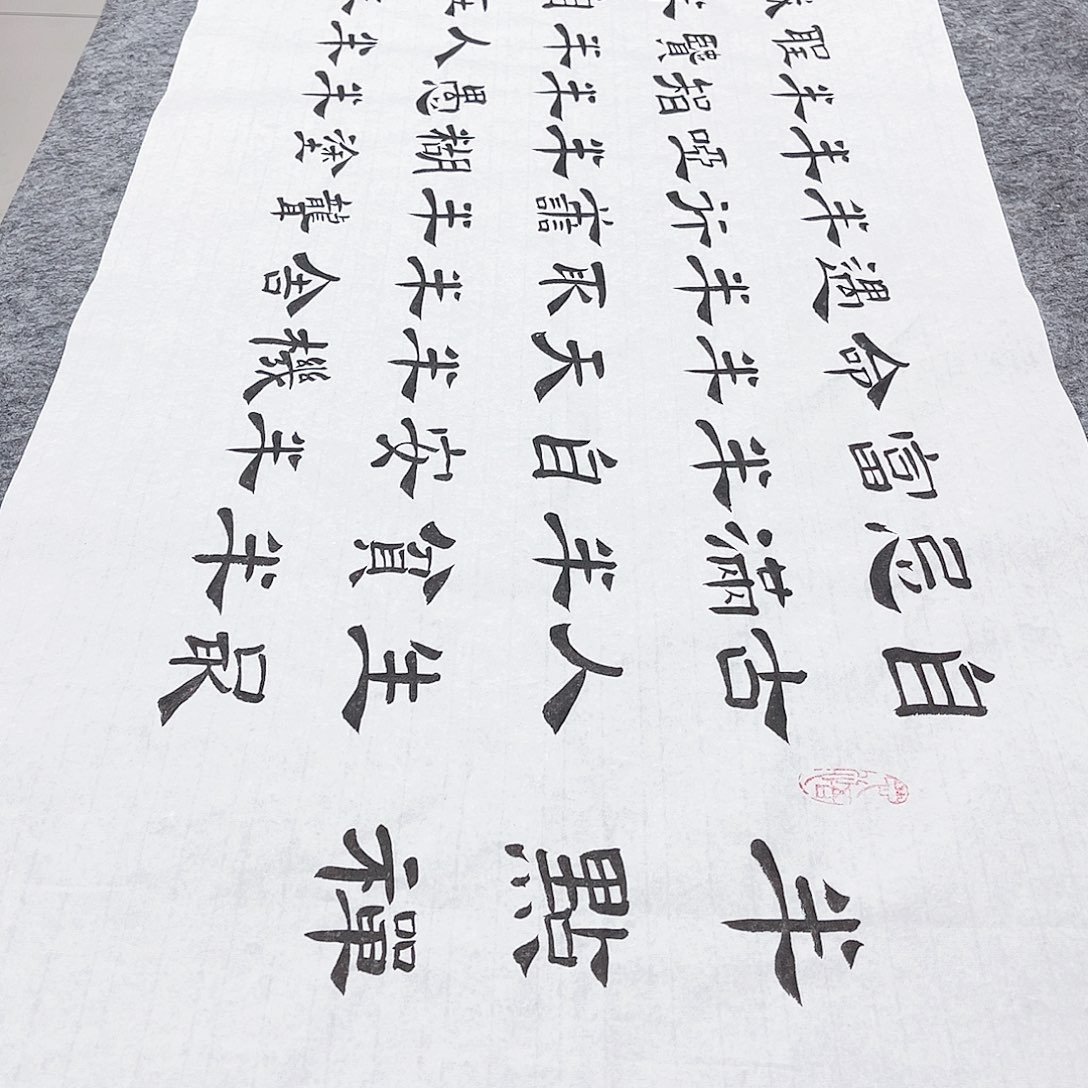 半點禪
自古人生最
忌滿半貧半
富半自安半
命半天半機
遇半取半舍
半行善半聾
半啞半糊塗
半智半愚半
聖賢半人半